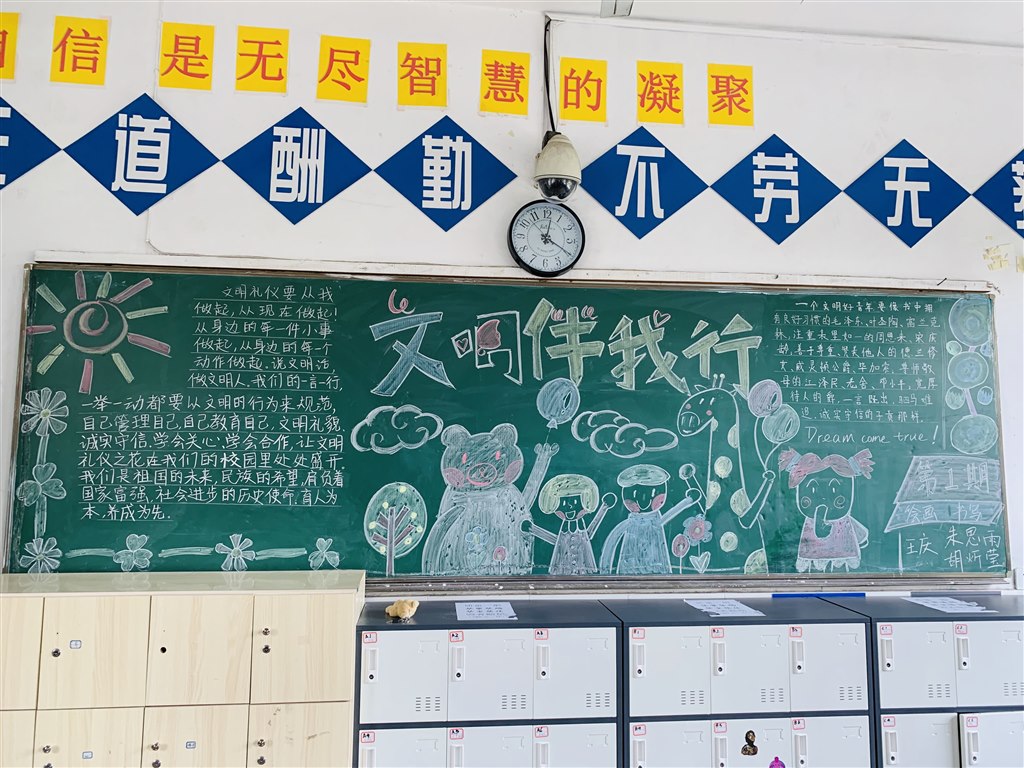 相信是无尽智慧的凝聚
天道酬勤 不劳无
文明礼仪要从我
做起,从现在做起!
从身边的每一件小事
做起,从身边的每一个
动作做起,说文明话,
做文明人,我们的一言一行,
一举一动都要从文明的行为来规范,
自己管理自己,自己教育自己,文明礼貌,
诚实守信,学会关心,学会合作,让文明
礼仪之花在我们的校园里处处盛开
我们是祖国的未来,民族的希望,肩负着
国家富强,社会进步的历史使命,育人为
本,养成为先.
“文明”伴我行
一个文明好青年要像书中拥
有良好习惯的毛泽东、叶圣陶、富兰克
林,注重表里如一的周恩来、宋庆
龄,善于尊重、赞美他人的
Dream come true!
第二期
绘画 书写
庄庆 朱思雨
胡炳莹